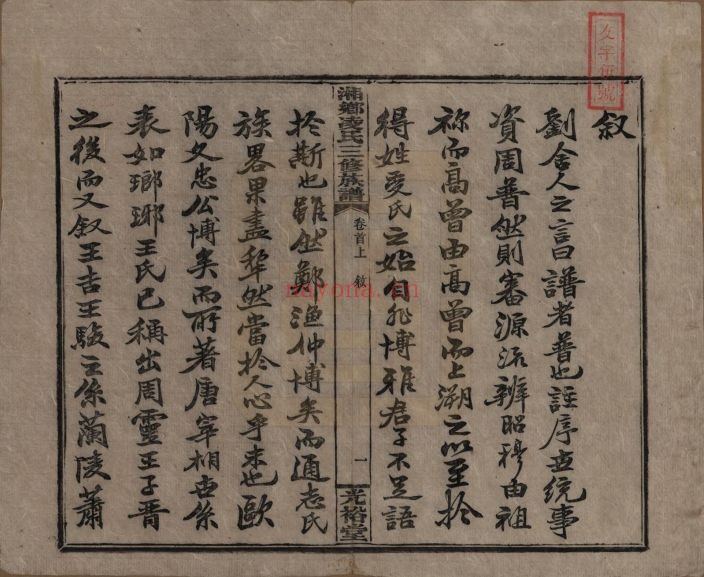 叙
劉舍人之言曰譜者普也註序世統事
資周普然則審源流辨昭穆由祖
祢而高曾由高曾而上溯之以至於
得姓受氏之始自非博雅君子不足語
湘鄉 氏三修族譜
卷首上 敘
一
光裕堂
於斯也雖然鄭漁仲博矣而通志氏
族畧果盡犂然當於人心乎未也歐
陽文忠公博矣而所著唐宰相世系
表如瑯琊王氏已稱出周靈王子晉
之後而又叙王吉王駿之系蘭陵蕭
nayona.cn